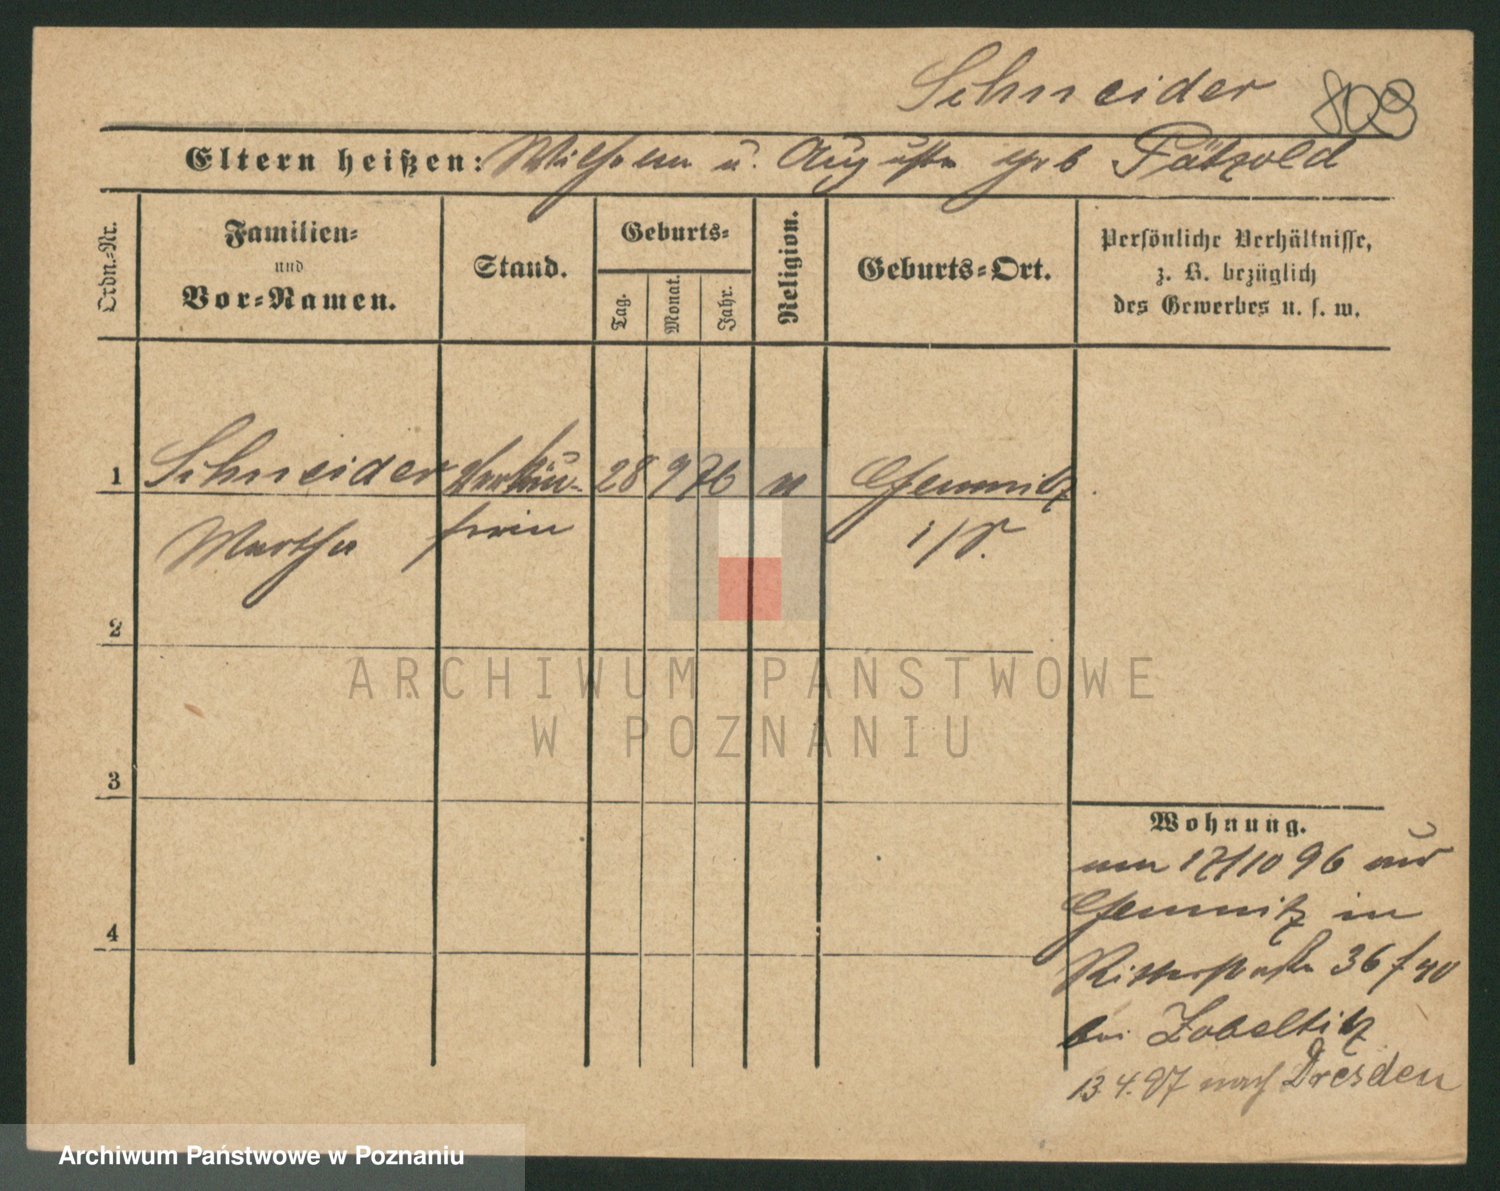 Schneider 803
Eltern heißen: Wilhelm u. Auguste geb Pätzold
Ordn.-Nr.
Familien-
und
Vor-Namen.
Stand.
Geburts-
Tag.
Monat.
Jahr.
Religion.
Geburts-Ort.
Persönliche Verhältnisse,
z. B. bezüglich
des Gewerbes u. s. w.
1 Schneider Verkäu- 28 9 76 Chemnitz
Martha ferin i/S.
2
ARCHIWUM PAŃSTWOWE
W POZNANIU
3
Wohnung.
am 17/10 96 aus
Chemnitz in
Ritterstraße 36/40
bei Zobeltitz
13.4.97 nach Dresden
4
Archiwum Państwowe w Poznaniu